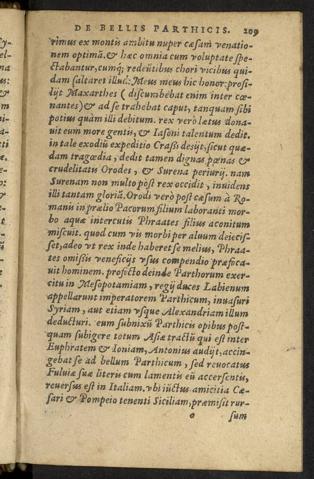 DE BELLIS PARTHICIS. 209
rimus ex montis ambitu nuper cæsam venatio-
nem optimā. & hæc omnia cum voluptate spe-
ctabantur, cumq; redeūtibus chori vicibus qui-
dam saltaret illud: Meus meus hic honor: prosi-
lijt Maxarthes (discumbebat enim inter cœ-
nantes) & ad se trahebat caput, tanquam sibi
potius quàm illi debitum. rex verò lætus dona-
uit eum more gentis, & Iasoni talentum dedit.
in tale exodiū expeditio Crassi desijt, sicut quæ-
dam tragœdia, dedit tamen dignas pœnas &
crudelitatis Orodes, & Surena periurij. nam
Surenam non multo pòst rex occidit, inuidens
illi tantam gloriā. Orodi verò pòst cæsum à Ro-
manis in prælio Pacorum filium laboranti mor-
bo aquæ intercutis Phraates filius aconitum
miscuit. quod cum vis morbi per aluum deiecis-
set, adeo vt rex inde haberet se melius, Phraa-
tes omissis veneficijs vsus compendio præfoca-
uit hominem. profecto deinde Parthorum exer-
citu in Mesopotamiam, regij duces Labienum
appellarunt imperatorem Parthicum, inuasuri
Syriam, aut etiam vsque Alexandriam illum
deducturi. eum subnixū Parthicis opibus post-
quam subigere totum Asiæ tractū qui est inter
Euphratem & Ioniam, Antonius audijt, accin-
gebat se ad bellum Parthicum, sed reuocatus
Fuluiæ suæ literis cum lamentis eū accersentis,
reuersus est in Italiam. vbi iūctus amicitia Cæ-
sari & Pompeio tenenti Siciliam, præmisit rur-
o sum